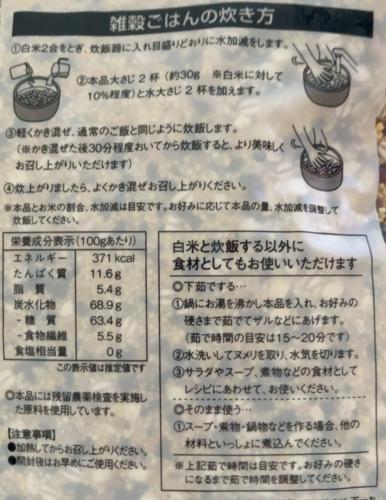 雑穀ごはんの炊き方
①白米2合をとぎ、炊飯器に入れ目盛りどおりに水加減をします。
②本品大さじ 2 杯（約30g　※白米に対して
10%程度）と水大さじ 2 杯を加えます。
③軽くかき混ぜ、通常のご飯と同じように炊飯します。
（※かき混ぜた後30分程度おいてから炊飯すると、より美味しく
お召し上がりいただけます）
④炊上がりましたら、よくかき混ぜお召し上がりください。
※本品とお米の割合、水加減は目安です。お好みに応じて本品の量、水加減を調整して
炊飯してください。
栄養成分表示（100gあたり）
エネルギー　371 kcal
たんぱく質　11.6 g
脂　質　5.4 g
炭水化物　68.9 g
- 糖　質　63.4 g
- 食物繊維　5.5 g
食塩相当量　0 g
この表示値は推定値です
◎本品には残留農薬検査を実施し
た原料を使用しています。
【注意事項】
●加熱してからお召し上がりください。
●開封後はお早めにご使用ください。
白米と炊飯する以外に
食材としてもお使いいただけます
◎下茹でする…
①鍋にお湯を沸かし本品を入れ、お好みの
硬さまで茹でてザルなどにあげます。
（茹で時間の目安は15〜20分です）
②水洗いしてヌメリを取り、水気を切ります。
③サラダやスープ、煮物などの食材として
レシピにあわせて、お使いください。
◎そのまま使う…
①スープ・煮物・鍋物などを作る場合、他の
材料といっしょに煮込んでください。
※上記茹で時間は目安です。お好みの硬さ
になるまで茹で時間を調整してください。